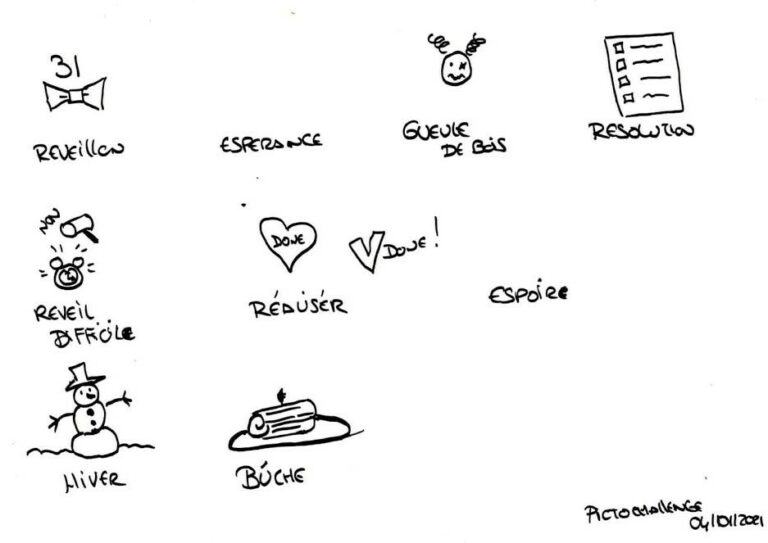 31
REVEILLON
ESPERANCE
GUEULE
DE BOIS
RESOLUTION
NON
DONE
DONE!
REVEIL
DIFFICILE
RÉALISER
ESPOIRE
HIVER
BÛCHE
PICTOCHALLENGE
04/01/2021